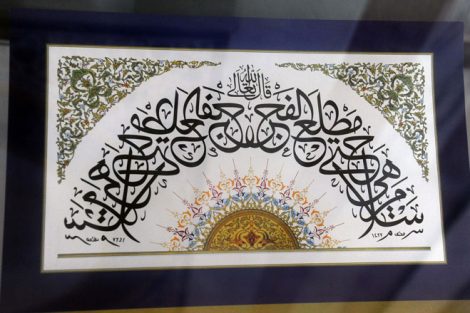 قال الله تعالى
سلام هي حتى مطلع الفجر
١٤٢٧